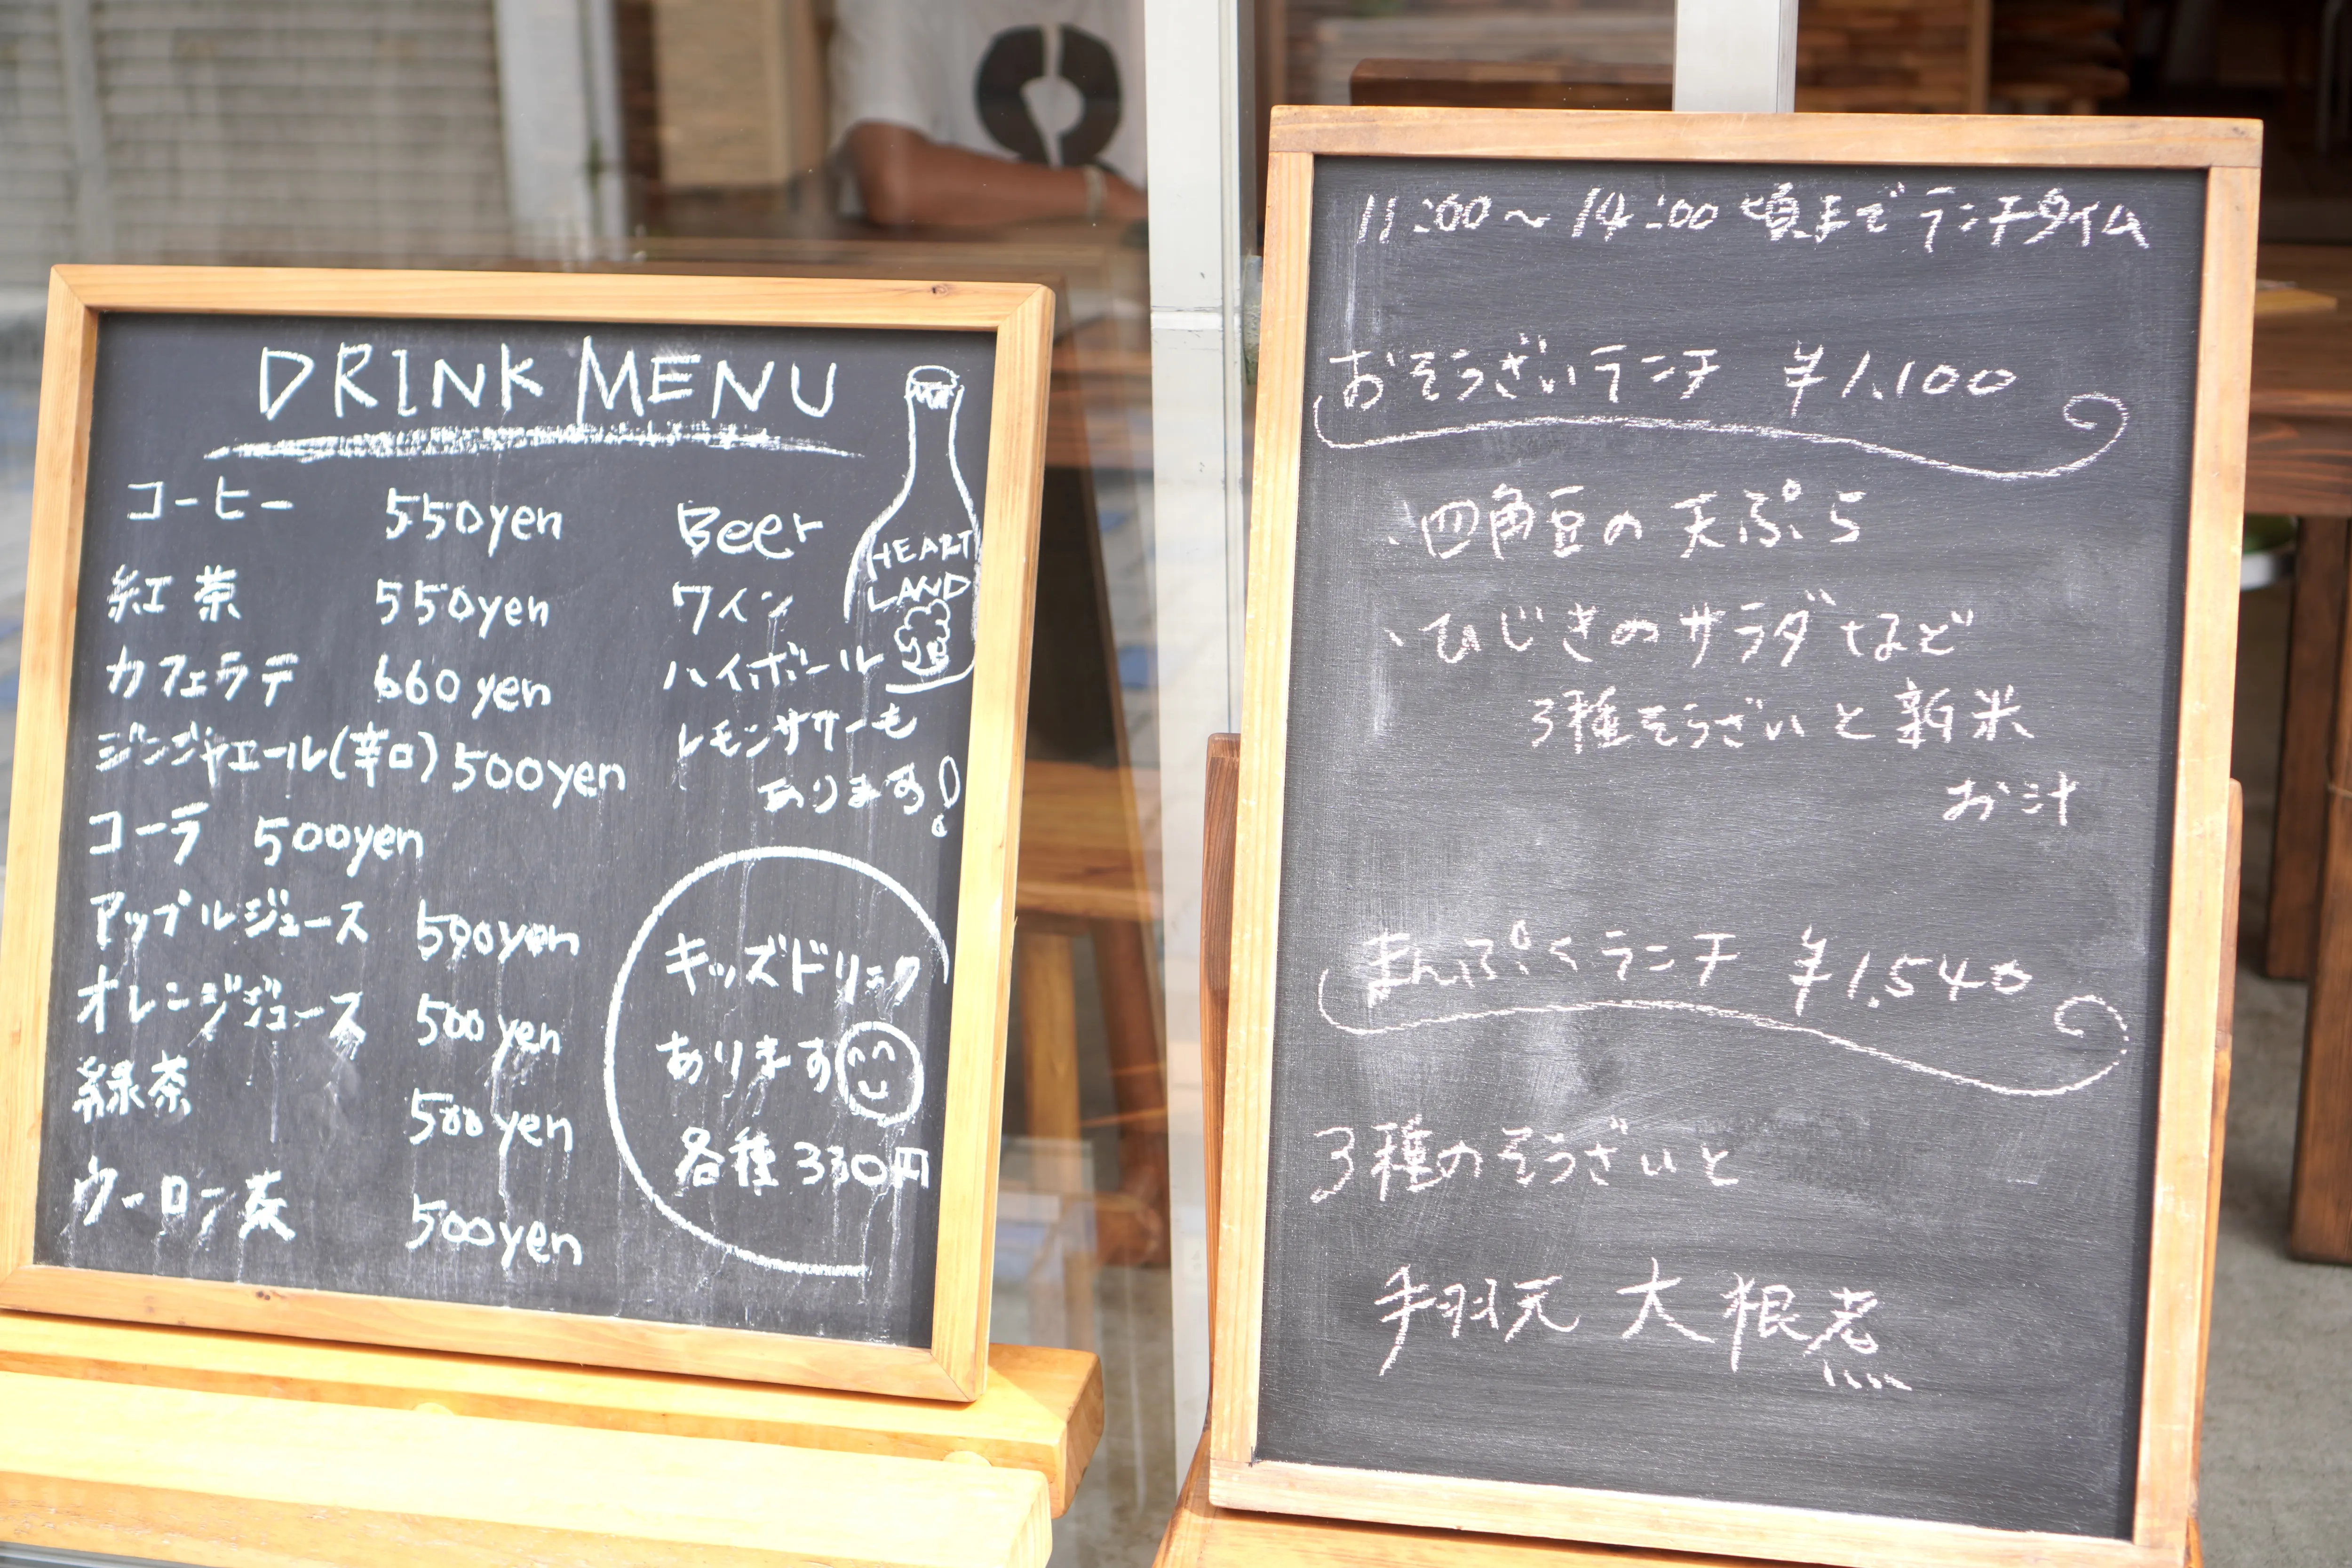 DRINK MENU
コーヒー 550yen
紅茶 550yen
カフェラテ 660yen
ジンジャエール(辛口) 500yen
コーラ 500yen
アップルジュース 500yen
オレンジジュース 500yen
緑茶 500yen
ウーロン茶 500yen
Beer
ワイン
ハイボール
レモンサワーも
あります!
HEART
LAND
キッズドリンク
あります
各種 330円
11:00～14:00 頃まで ランチタイム
おそうざいランチ ¥1,100
、四角豆の天ぷら
、ひじきのサラダなど
3種そうざいと新米
お汁
まんぷくランチ ¥1,540
3種のそうざいと
手羽元 大根煮